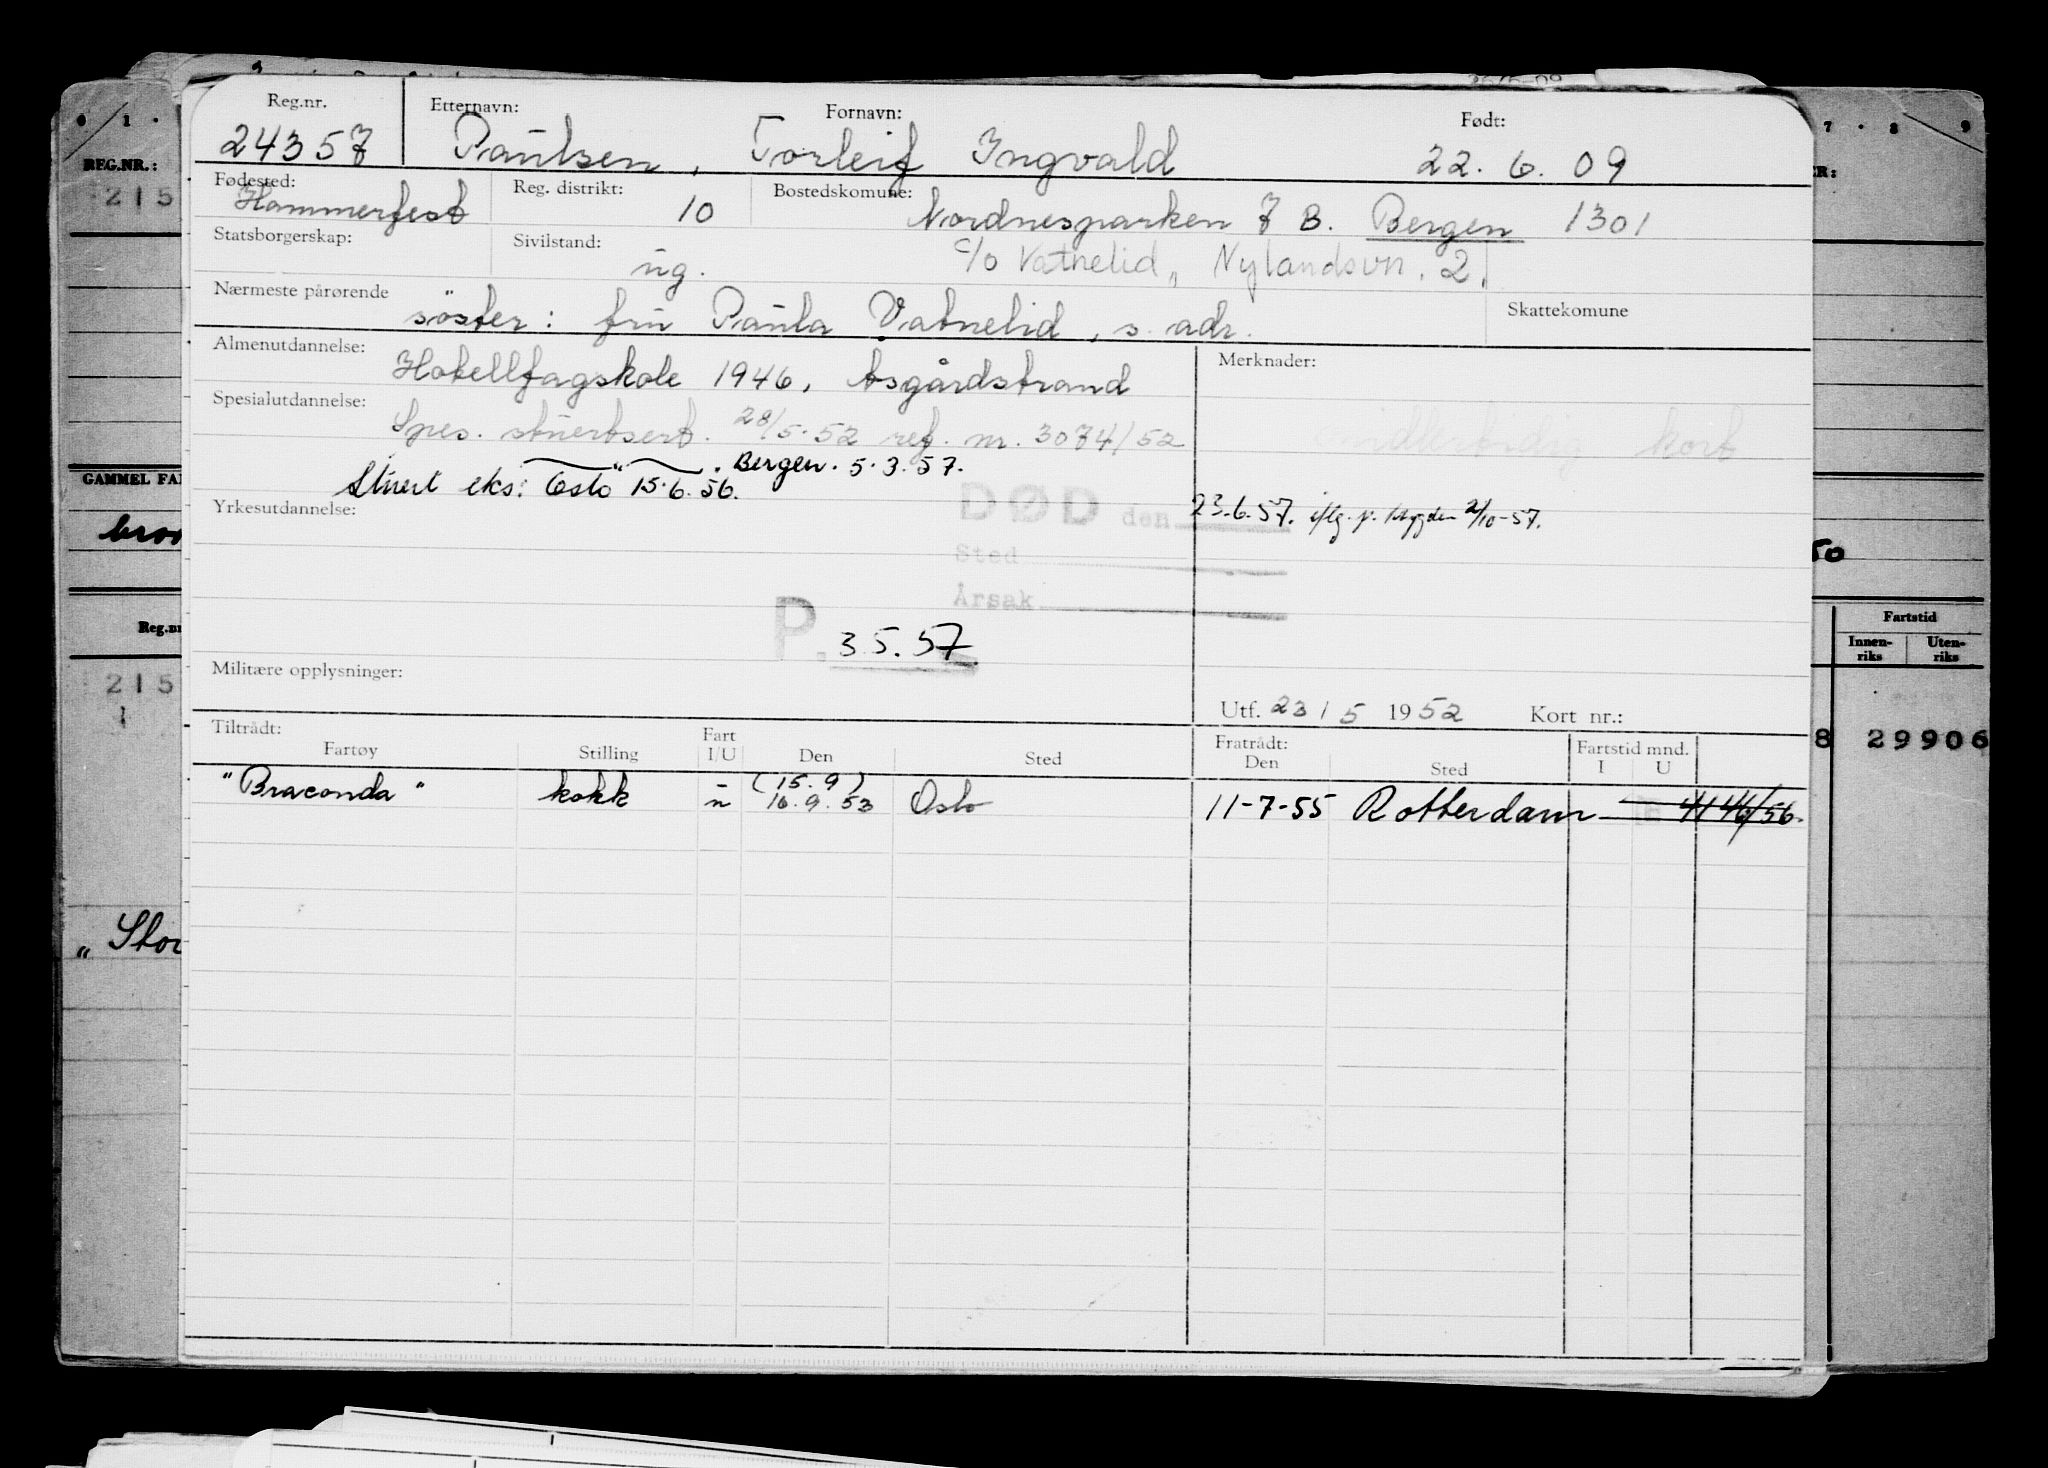 Reg.nr. Etternavn: Fornavn: Født:
24357 Paulsen, Torleif Ingvald 22.6.09
Fødested: Reg. distrikt: Bostedskomune:
Hammerfest 10 Nordnesparken 7 B. Bergen 1301
Statsborgerskap: Sivilstand:
ug. c/o Vatnelid, Nylandsvn. 2.
Nærmeste pårørende Skattekomune
søster: fru Paula Vatnelid, s. adr.
Almenutdannelse: Merknader:
Hotellfagskole 1946, Åsgårdstrand
Spesialutdannelse:
Spes. stuertsert. 28/5-52 ref. nr. 3074/52 kort
" Bergen. 5.3.57.
Stuert eks: Oslo 15.6.56.
Yrkesutdannelse:
DØD den 23.6.57. iflg. p. trygden 2/10-57.
Sted
Årsak
P. 3.5.57
Militære opplysninger:
Utf. 23 / 5 1952 Kort nr.:
Tiltrådt: Fart Fratrådt: Fartstid mnd.
Fartøy Stilling I/U Den Sted Den Sted I U
"Braconda" kokk u (15.9) 16.9.53 Oslo 11-7-55 Rotterdam 4146/56.
REG.NR.:
215
GAMMEL FA
Reg.nr
215
1
"Stor
7 · 8 9
ER:
50
Fartstid
Innen- Uten-
riks riks
8 29906